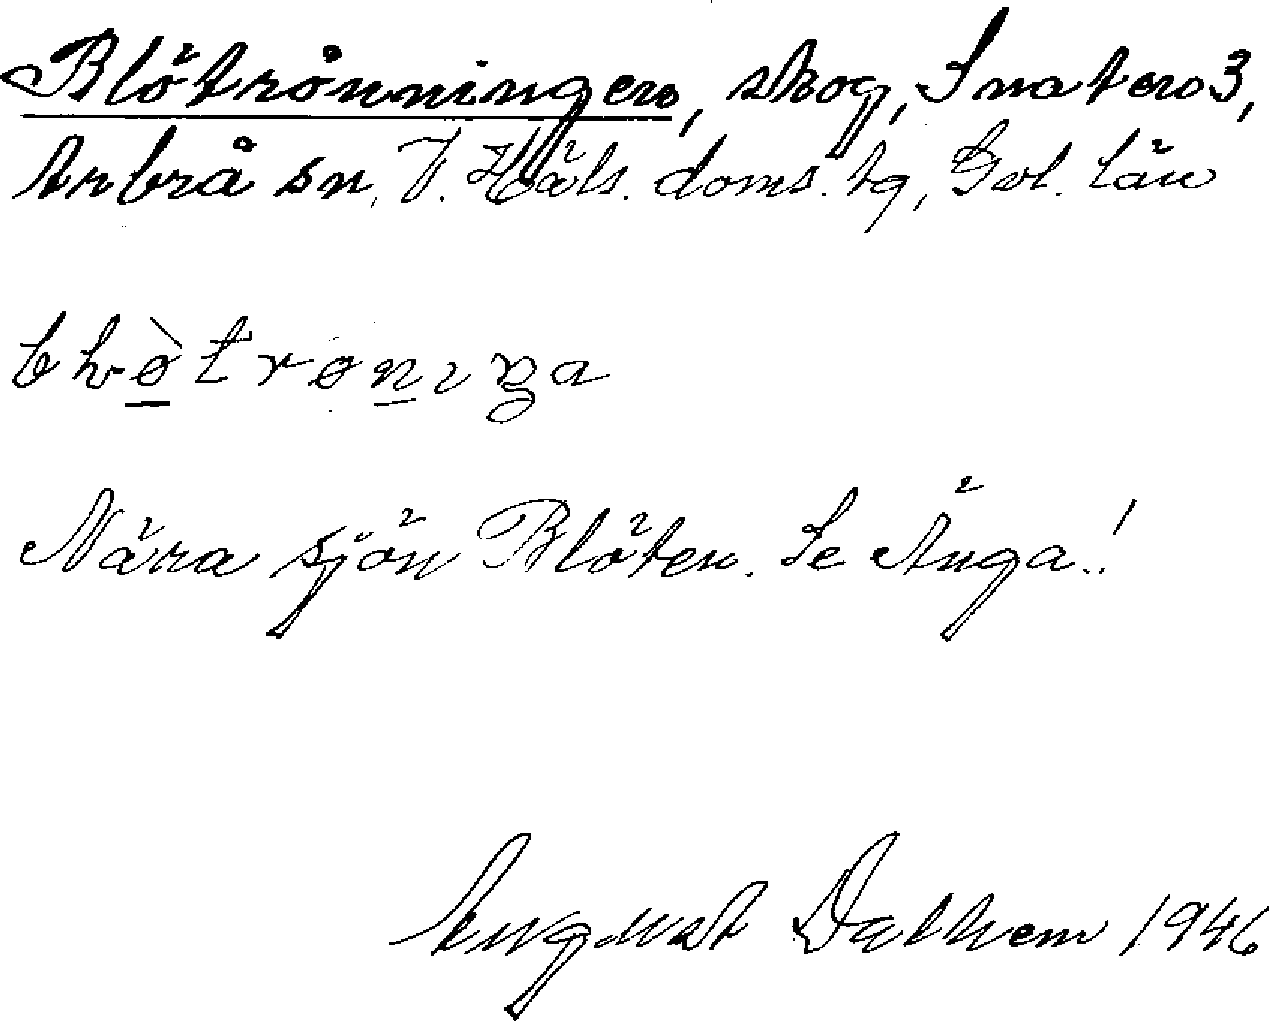 Blötrönningen, skog, Snaten 3,
Arbrå sn, V. Häls. doms. tg, Gvl. län
Nära sjön Blöten. Se Ånga!
August Dalhem 1946